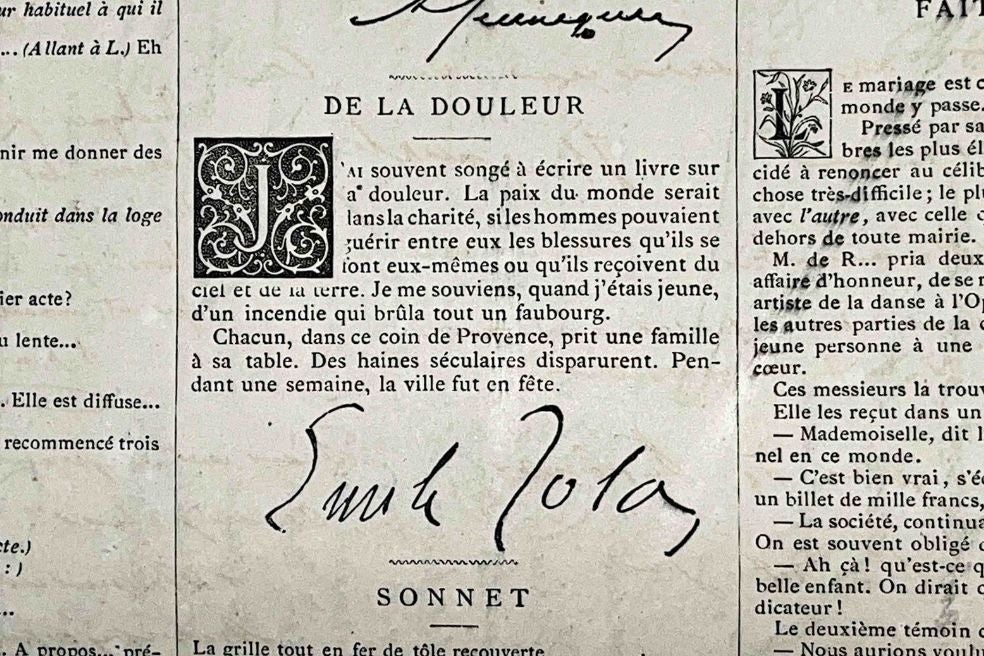 ur habituel à qui il
... (Allant à L.) Eh
nir me donner des
onduit dans la loge
ier acte?
u lente...
. Elle est diffuse...
recommencé trois
cte.)
: )
...
. A propos... pré-
DE LA DOULEUR
J'AI souvent songé à écrire un livre sur
a douleur. La paix du monde serait
dans la charité, si les hommes pouvaient
guérir entre eux les blessures qu'ils se
font eux-mêmes ou qu'ils reçoivent du
ciel et de la terre. Je me souviens, quand j'étais jeune,
d'un incendie qui brûla tout un faubourg.
Chacun, dans ce coin de Provence, prit une famille
à sa table. Des haines séculaires disparurent. Pen-
dant une semaine, la ville fut en fête.
Emile Zola
SONNET
La grille tout en fer de tôle recouverte
FAIT
LE mariage est c
monde y passe.
Pressé par sa
bres les plus él
cidé à renoncer au célib
chose très-difficile; le plu
avec l'autre, avec celle c
dehors de toute mairie.
M. de R... pria deux
affaire d'honneur, de se r
artiste de la danse à l'Op
les autres parties de la c
jeune personne à une
cœur.
Ces messieurs la trouv
Elle les reçut dans un
— Mademoiselle, dit l
nel en ce monde.
— C'est bien vrai, s'éc
un billet de mille francs,
— La société, continua
On est souvent obligé d
— Ah çà! qu'est-ce q
belle enfant. On dirait c
dicateur!
Le deuxième témoin c
— Nous aurions voulu